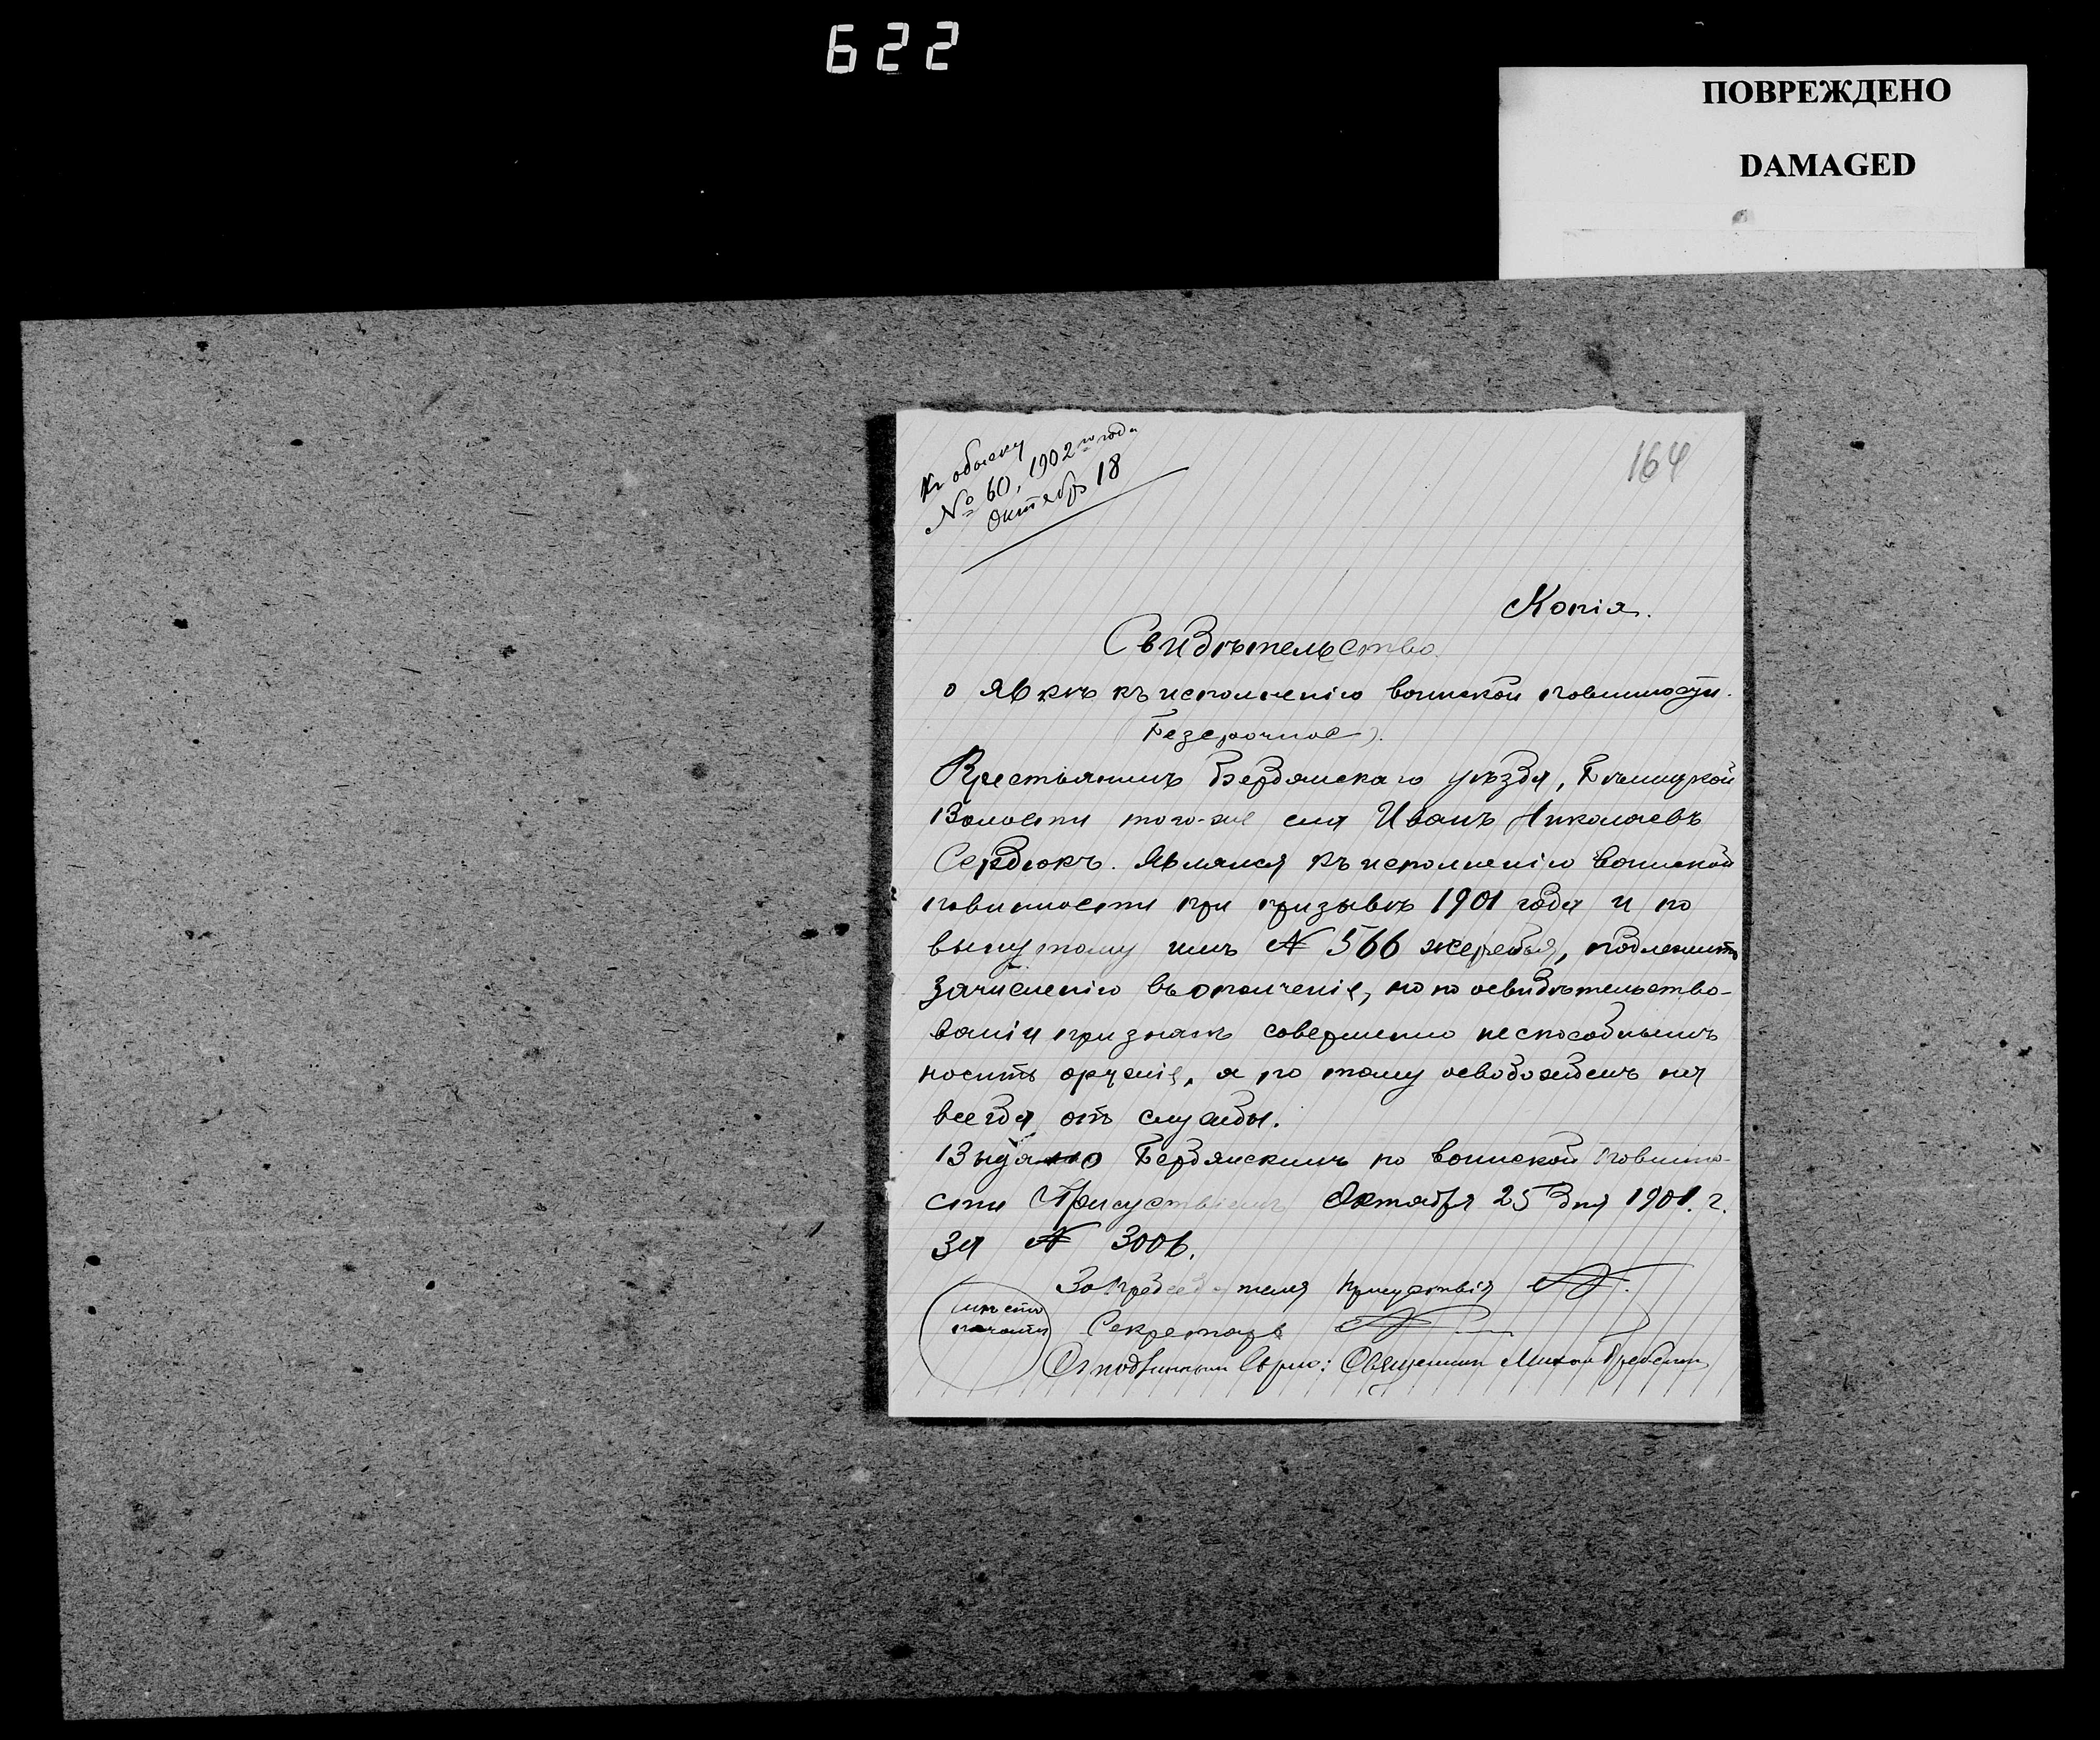 622
ПОВРЕЖДЕНО
DAMAGED
Къ обыску
№ 60, 1902го года
Октябр 18
164
Копія.
Свидѣтельство
о явкѣ къ исполненію воинской повинности.
(Безсрочное).
Крестьянинъ Бердянскаго уѣзда,
Волости того-же села Иванъ Николаевъ
Сердюкъ. Являлся къ исполненію воинской
повинности при призывѣ 1901 года и по
вынутому имъ № 566 жеребья, подлежитъ
зачисленію въ ополченіе, но по освидѣтельство-
ваніи признанъ совершенно неспособнымъ
носить оружіе, а по тому освобожденъ на
всегда отъ службы.
Выдано Бердянскимъ по воинской повинно-
сти Присутствіемъ Октября 25 дня 1901. г.
за № 3006.
За Предсѣдателя Присутствія
мѣсто
печати
Секретарь
Съ подлиннымъ вѣрно: Священникъ Михаил